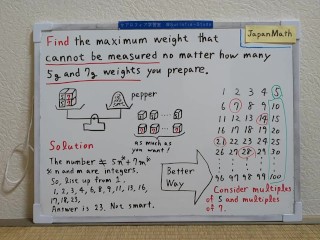 JapanMath
Find the maximum weight that
cannot be measured no matter how many
5g and 7g weights you prepare.
pepper
as much as
you want!
Solution
The number ≠ 5n※+7m※
※ n and m are integers.
So, list up from 1.
1, 2, 3, 4, 6, 8, 9, 11, 13, 16,
17, 18, 23,
Answer is 23. Not smart.
Better
Way
1 2 3 4 5
6 7 8 9 10
11 12 13 14 15
16 17 18 19 20
21 22 23 24 25
26 27 28 29 30
96 97 98 99 100
Consider multiples
of 5 and multiples
of 7.